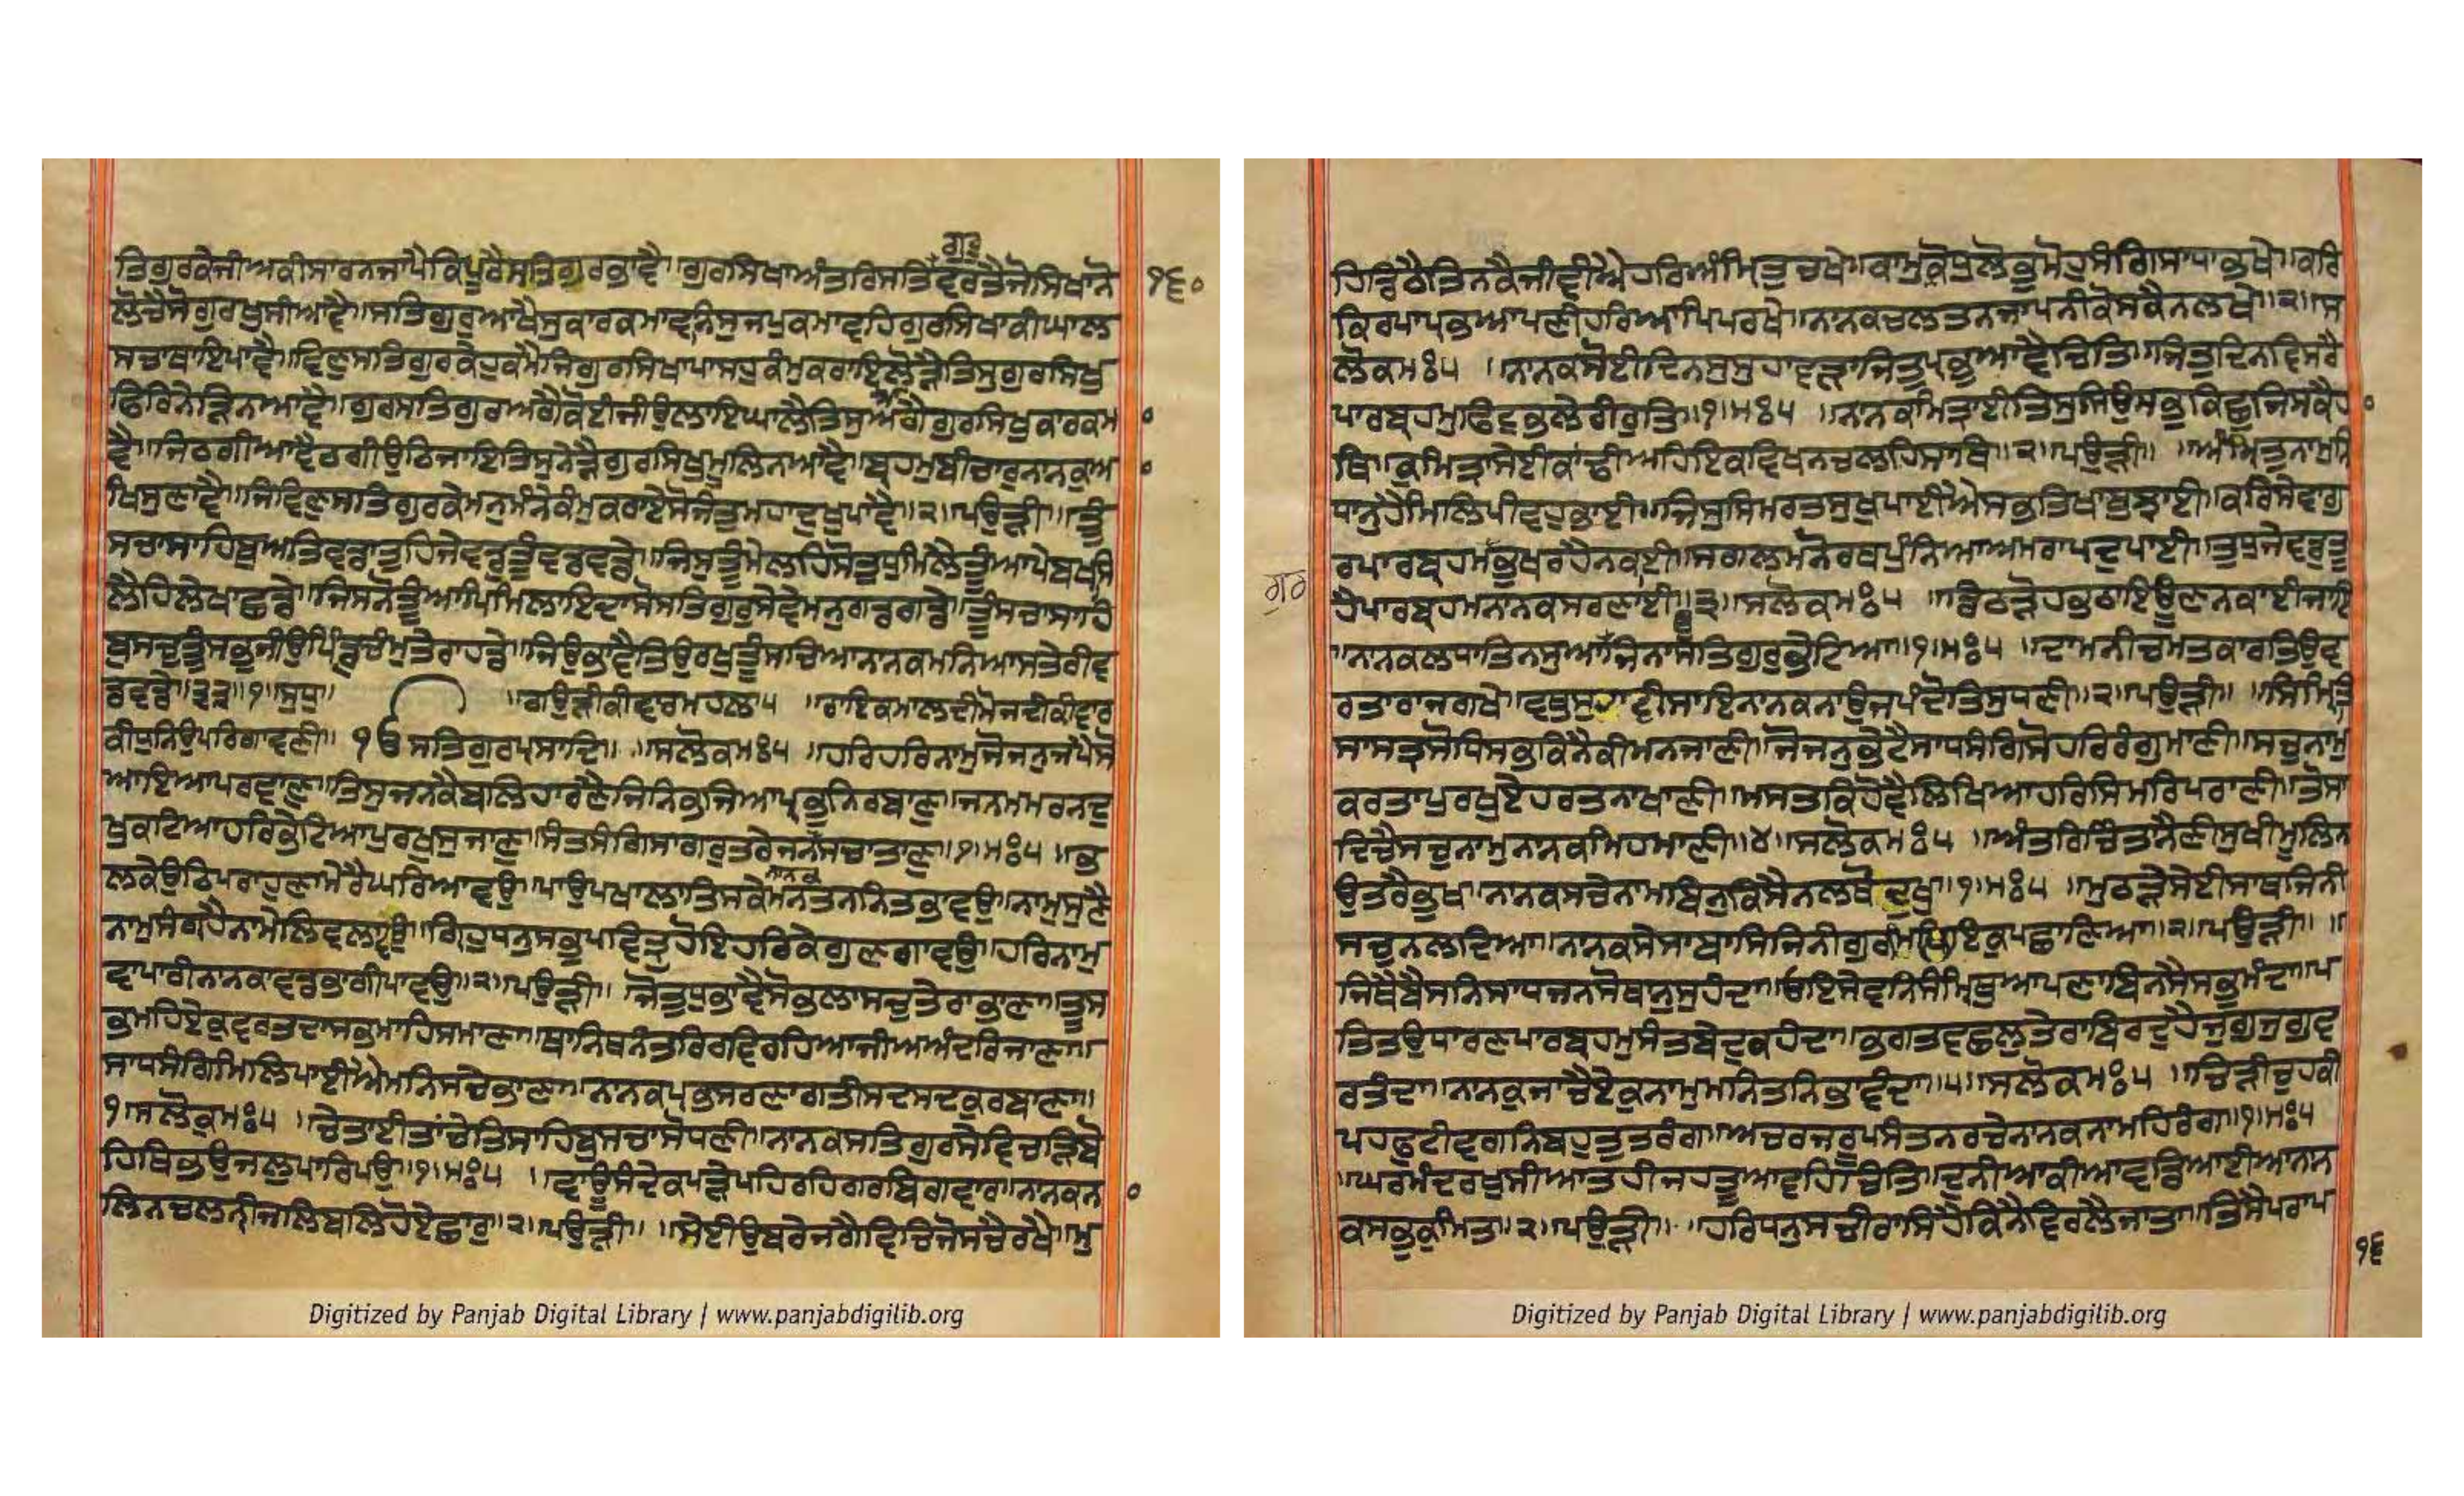 ਤਿਗੁਰਕੇਜੀਅਕੀਸਾਰਨਜਾਪੈਕਿਪੂਰੈਸਤਿਗੁਰਭਾਵੈ॥ਗੁਰਸਿਖਾਅੰਤਰਿਸਤਿਗੁਰੂਵਰਤੈਜੋਸਿਖਾਨੋ
੧੬੦
ਲੋਚੈਸੋਗੁਰਖੁਸੀਆਵੈ॥ਸਤਿਗੁਰੁਆਖੈਸੁਕਾਰਕਮਾਵਨਿਸੁਜਪੁਕਮਾਵਹਿਗੁਰਸਿਖਾਕੀਘਾਲ
ਸਚਾਥਾਇਪਾਵੈ॥ਵਿਣੁਸਤਿਗੁਰਕੇਹੁਕਮੈਜਿਗੁਰਸਿਖਾਪਾਸਹੁਕੰਮੁਕਰਾਇਲੋੜੈਤਿਸੁਗੁਰਸਿਖੁ
ਫਿਰਿਨੇੜਿਨਆਵੈ॥ਗੁਰਸਤਿਗੁਰਅਗੈਕੋਈਜੀਉਲਾਇਘਾਲੈਤਿਸੁਅਗੈਗੁਰਸਿਖੁਕਾਰਕਮ
ਵੈ॥ਜਿਠਗੀਆਵੈਠਗੀਉਠਿਜਾਇਤਿਸੁਨੇੜੈਗੁਰਸਿਖੁਮੂਲਿਨਆਵੈ॥ਬ੍ਰਹਮੁਬੀਚਾਰੁਨਾਨਕੁਆ
ਖਿਸੁਣਾਵੈ॥ਜਿਵਿਣੁਸਤਿਗੁਰਕੇਮਨੁਮੰਨੇਕੰਮੁਕਰਾਏਸੋਜੰਤੁਮਹਾਦੁਖੁਪਾਵੈ॥੨॥ਪਉੜੀ॥ਤੂੰ
ਸਚਾਸਾਹਿਬੁਅਤਿਵਡਾਤੁਹਿਜੇਵਡੁਤੂੰਵਡਵਡੇ॥ਜਿਸੁਤੂੰਮੇਲਹਿਸੋਤੁਧੁਮਿਲੈਤੂੰਆਪੇਬਖਸਿ
ਲੈਹਿਲੇਖਾਛਡੇ॥ਜਿਸਨੋਤੂੰਆਪਿਮਿਲਾਇਦਾਸੋਸਤਿਗੁਰੁਸੇਵੇਮਨੁਗਡਗਡੇ॥ਤੂੰਸਚਾਸਾਹਿ
ਬੁਸਚੁਤੂੰਸਭੁਜੀਉਪਿੰਡੁਚੰਮੁਤੇਰਾਹਡੇ॥ਜਿਉਭਾਵੈਤਿਉਰਖੁਤੂੰਸਚਿਆਨਾਨਕਮਨਿਆਸਤੇਰੀਵ
ਡਵਡੇ॥੩੩॥੧॥ਸੁਧੁ॥ ॥ਗਉੜੀਕੀਵਾਰਮਹਲਾ੫ ॥ਰਾਇਕਮਾਲਦੀਮੋਜਦੀਕੀਵਾਰ
ਕੀਧੁਨਿਉਪਰਿਗਾਵਣੀ॥ ੴਸਤਿਗੁਰਪ੍ਰਸਾਦਿ॥ ॥ਸਲੋਕਮਃ੫ ॥ਹਰਿਹਰਿਨਾਮੁਜੋਜਨੁਜਪੈਸੋ
ਆਇਆਪਰਵਾਣੁ॥ਤਿਸੁਜਨਕੈਬਲਿਹਾਰਣੈਜਿਨਿਭਜਿਆਪ੍ਰਭੁਨਿਰਬਾਣੁ॥ਜਨਮਮਰਨਦੁ
ਖੁਕਟਿਆਹਰਿਭੇਟਿਆਪੁਰਖੁਸੁਜਾਣੁ॥ਸੰਤਸੰਗਿਸਾਗਰੁਤਰੇਜਨਸਚਾਤਾਣੁ॥੧॥ਮਃ੫॥ਭ
ਲਕੇਉਠਿਪਰਾਹੁਣਾਮੇਰੈਘਰਿਆਵਉ॥ਪਾਉਪਖਾਲਾਤਿਸਕੇਮਨਿਤਨਿਨਿਤਭਾਵਉ॥ਨਾਮੁਸੁਣੈ
ਨਾਮੁਸੰਗ੍ਰਹੈਨਾਮੇਲਿਵਲਾਵਉ॥ਗ੍ਰਿਹੁਧਨੁਸਭੁਪਵਿਤ੍ਰੁਹੋਇਹਰਿਕੇਗੁਣਗਾਵਉ॥ਹਰਿਨਾਮੁ
ਵਾਪਾਰੀਨਾਨਕਾਵਡਭਾਗੀਪਾਵਉ॥੨॥ਪਉੜੀ॥ ਜੋਤੁਧੁਭਾਵੈਸੋਭਲਾਸਚੁਤੇਰਾਭਾਣਾ॥ਤੂਸ
ਭਮਹਿਏਕੁਵਰਤਦਾਸਭਮਾਹਿਸਮਾਣਾ॥ਥਾਨਿਥਨੰਤਰਿਰਵਿਰਹਿਆਜੀਅਅੰਦਰਿਜਾਣਾ॥
ਸਾਧਸੰਗਿਮਿਲਿਪਾਈਐਮਨਿਸਚੇਭਾਣਾ॥ਨਾਨਕਪ੍ਰਭਸਰਣਾਗਤੀਸਦਸਦਕੁਰਬਾਣਾ॥
੧॥ਸਲੋਕੁਮਃ੫ ॥ਚੇਤਾਈਤਾਂਚੇਤਿਸਾਹਿਬੁਸਚਾਸੋਧਣੀ॥ਨਾਨਕਸਤਿਗੁਰਸੇਵਿਚੜਿਬੋ
ਹਿਥਿਭਉਜਲੁਪਾਰਿਪਉ॥੧॥ਮਃ੫ ॥ਵਾਊਸੰਦੇਕਪੜੇਪਹਿਰਹਿਗਰਬਿਗਵਾਰ॥ਨਾਨਕਨ
ਲਿਨਚਲਨੀਜਲਿਬਲਿਹੋਏਛਾਰੁ॥੨॥ਪਉੜੀ॥ ॥ਸੇਈਉਬਰੇਜਗੈਵਿਚਿਜੋਸਚੈਰਖੇ॥ਮੁ
ਹਿਡਿਠੈਤਿਨਕੈਜੀਵੀਐਹਰਿਅੰਮ੍ਰਿਤੁਚਖੇ॥ਕਾਮੁਕ੍ਰੋਧੁਲੋਭੁਮੋਹੁਸੰਗਿਸਾਧਾਭਖੇ॥ਕਰਿ
ਕਿਰਪਾਪ੍ਰਭਆਪਣੀਹਰਿਆਪਿਪਰਖੇ॥ਨਾਨਕਚਲਤਨਜਾਪਨੀਕੋਸਕੈਨਲਖੇ॥੨॥ਸ
ਲੋਕਮਃ੫ ॥ਨਾਨਕਸੋਈਦਿਨਸੁਸੁਹਾਵੜਾਜਿਤੁਪ੍ਰਭੁਆਵੈਚਿਤਿ॥ਜਿਤੁਦਿਨਵਿਸਰੈ
ਪਾਰਬ੍ਰਹਮੁਫਿਟੁਭਲੇਰੀਰੁਤਿ॥੧॥ਮਃ੫ ॥ਨਾਨਕਮਿਤ੍ਰਾਈਤਿਸੁਸਿਉਸਭੁਕਿਛੁਜਿਸਕੈਹ
ਥਿ॥ਕੁਮਿਤ੍ਰਾਸੇਈਕਾਂਢੀਅਹਿਇਕਵਿਖਨਚਲਹਿਸਾਥਿ॥੨॥ਪਉੜੀ॥ ॥ਅੰਮ੍ਰਿਤੁਨਾਮੁਨਿ
ਧਾਨੁਹੈਮਿਲਿਪੀਵਹੁਭਾਈ॥ਜਿਸੁਸਿਮਰਤਸੁਖੁਪਾਈਐਸਭਤਿਖਾਬੁਝਾਈ॥ਕਰਿਸੇਵਾਗੁ
ਰਪਾਰਬ੍ਰਹਮਭੁਖਰਹੈਨਕਾਈ॥ਸਗਲਮਨੋਰਥਪੁੰਨਿਆਅਮਰਾਪਦੁਪਾਈ॥ਤੁਧੁਜੇਵਡੁਤੂ
ਹੈਪਾਰਬ੍ਰਹਮਨਾਨਕਸਰਣਾਈ॥੩॥ਸਲੋਕਮਃ੫ ॥ਡਿਠੜੋਹਭਠਾਇਊਣਨਕਾਈਜਾਇ
॥ਨਾਨਕਲਧਾਤਿਨਸੁਆਉਜਿਨਾਸਤਿਗੁਰੁਭੇਟਿਆ॥੧॥ਮਃ੫ ॥ਦਾਮਨੀਚਮਤਕਾਰਤਿਉਵ
ਰਤਾਰਾਜਗਖੇ॥ਵਥੁਸੁਹਾਵੀਸਾਇਨਾਨਕਨਾਉਜਪੰਦੋਤਿਸੁਧਣੀ॥੨॥ਪਉੜੀ॥ ॥ਸਿੰਮ੍ਰਿਤਿ
ਸਾਸਤ੍ਰਸੋਧਿਸਭਕਿਨੈਕੀਮਨਜਾਣੀ॥ਜੋਜਨੁਭੇਟੈਸਾਧਸੰਗਿਸੋਹਰਿਰੰਗੁਮਾਣੀ॥ਸਚੁਨਾਮੁ
ਕਰਤਾਪੁਰਖੁਏਹਰਤਨਾਖਾਣੀ॥ਮਸਤਕਿਹੋਵੈਲਿਖਿਆਹਰਿਸਿਮਰਿਪਰਾਣੀ॥ਤੋਸਾ
ਦਿਚੈਸਚੁਨਾਮੁਨਾਨਕਮਿਹਮਾਣੀ॥੪॥ਸਲੋਕਮਃ੫ ॥ਅੰਤਰਿਚਿੰਤਾਨੈਣੀਸੁਖੀਮੂਲਿਨ
ਉਤਰੈਭੁਖ॥ਨਾਨਕਸਚੇਨਾਮਬਿਨੁਕਿਸੈਨਲਥੋਦੁਖੁ॥੧॥ਮਃ੫ ॥ਮੁਠੜੇਸੇਈਸਾਥਜਿਨੀ
ਸਚੁਨਲਦਿਆ॥ਨਾਨਕਸੇਸਾਬਾਸਿਜਿਨੀਗੁਰਮਿਲਿਇਕੁਪਛਾਣਿਆ॥੨॥ਪਉੜੀ॥ ॥
ਜਿਥੈਬੈਸਨਿਸਾਧਜਨਸੋਥਾਨੁਸੁਹੰਦਾ॥ਓਇਸੇਵਨਿਸੰਮ੍ਰਿਥੁਆਪਣਾਬਿਨਸੈਸਭੁਮੰਦਾ॥ਪ
ਤਿਤਉਧਾਰਣਪਾਰਬ੍ਰਹਮੁਸੰਤਬੇਦੁਕਹੰਦਾ॥ਭਗਤਵਛਲੁਤੇਰਾਬਿਰਦੁਹੈਜੁਗੁਜੁਗੁਵ
ਰਤੰਦਾ॥ਨਾਨਕੁਜਾਚੈਏਕੁਨਾਮੁਮਨਿਤਨਿਭਾਵੰਦਾ॥੫॥ਸਲੋਕਮਃ੫ ॥ਚਿੜੀਚੁਹਕੀ
ਪਹੁਫੁਟੀਵਗਨਿਬਹੁਤੁਤਰੰਗ॥ਅਚਰਜਰੂਪਸੰਤਨਰਚੇਨਾਨਕਨਾਮਹਿਰੰਗ॥੧॥ਮਃ੫
॥ਘਰਮੰਦਰਖੁਸੀਆਤਹੀਜਹਤੂਆਵਹਿਚਿਤਿ॥ਦੁਨੀਆਕੀਆਵਡਿਆਈਆਨਾਨ
ਕਸਭਿਕੁਮਿਤ॥੨॥ਪਉੜੀ॥ ॥ਹਰਿਧਨੁਸਚੀਰਾਸਿਹੈਕਿਨੈਵਿਰਲੈਜਾਤਾ॥ਤਿਸੈਪਰਾਪ
੧੬
Digitized by Panjab Digital Library | www.panjabdigilib.org
Digitized by Panjab Digital Library | www.panjabdigilib.org